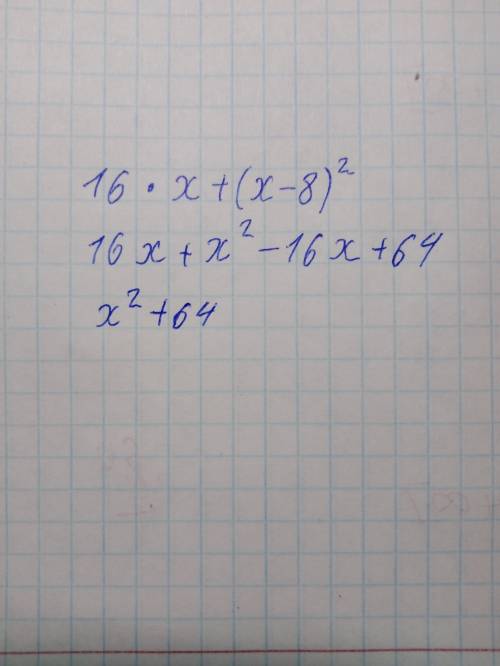 16 · x + (x - 8)²
16x + x² - 16x + 64
x² + 64